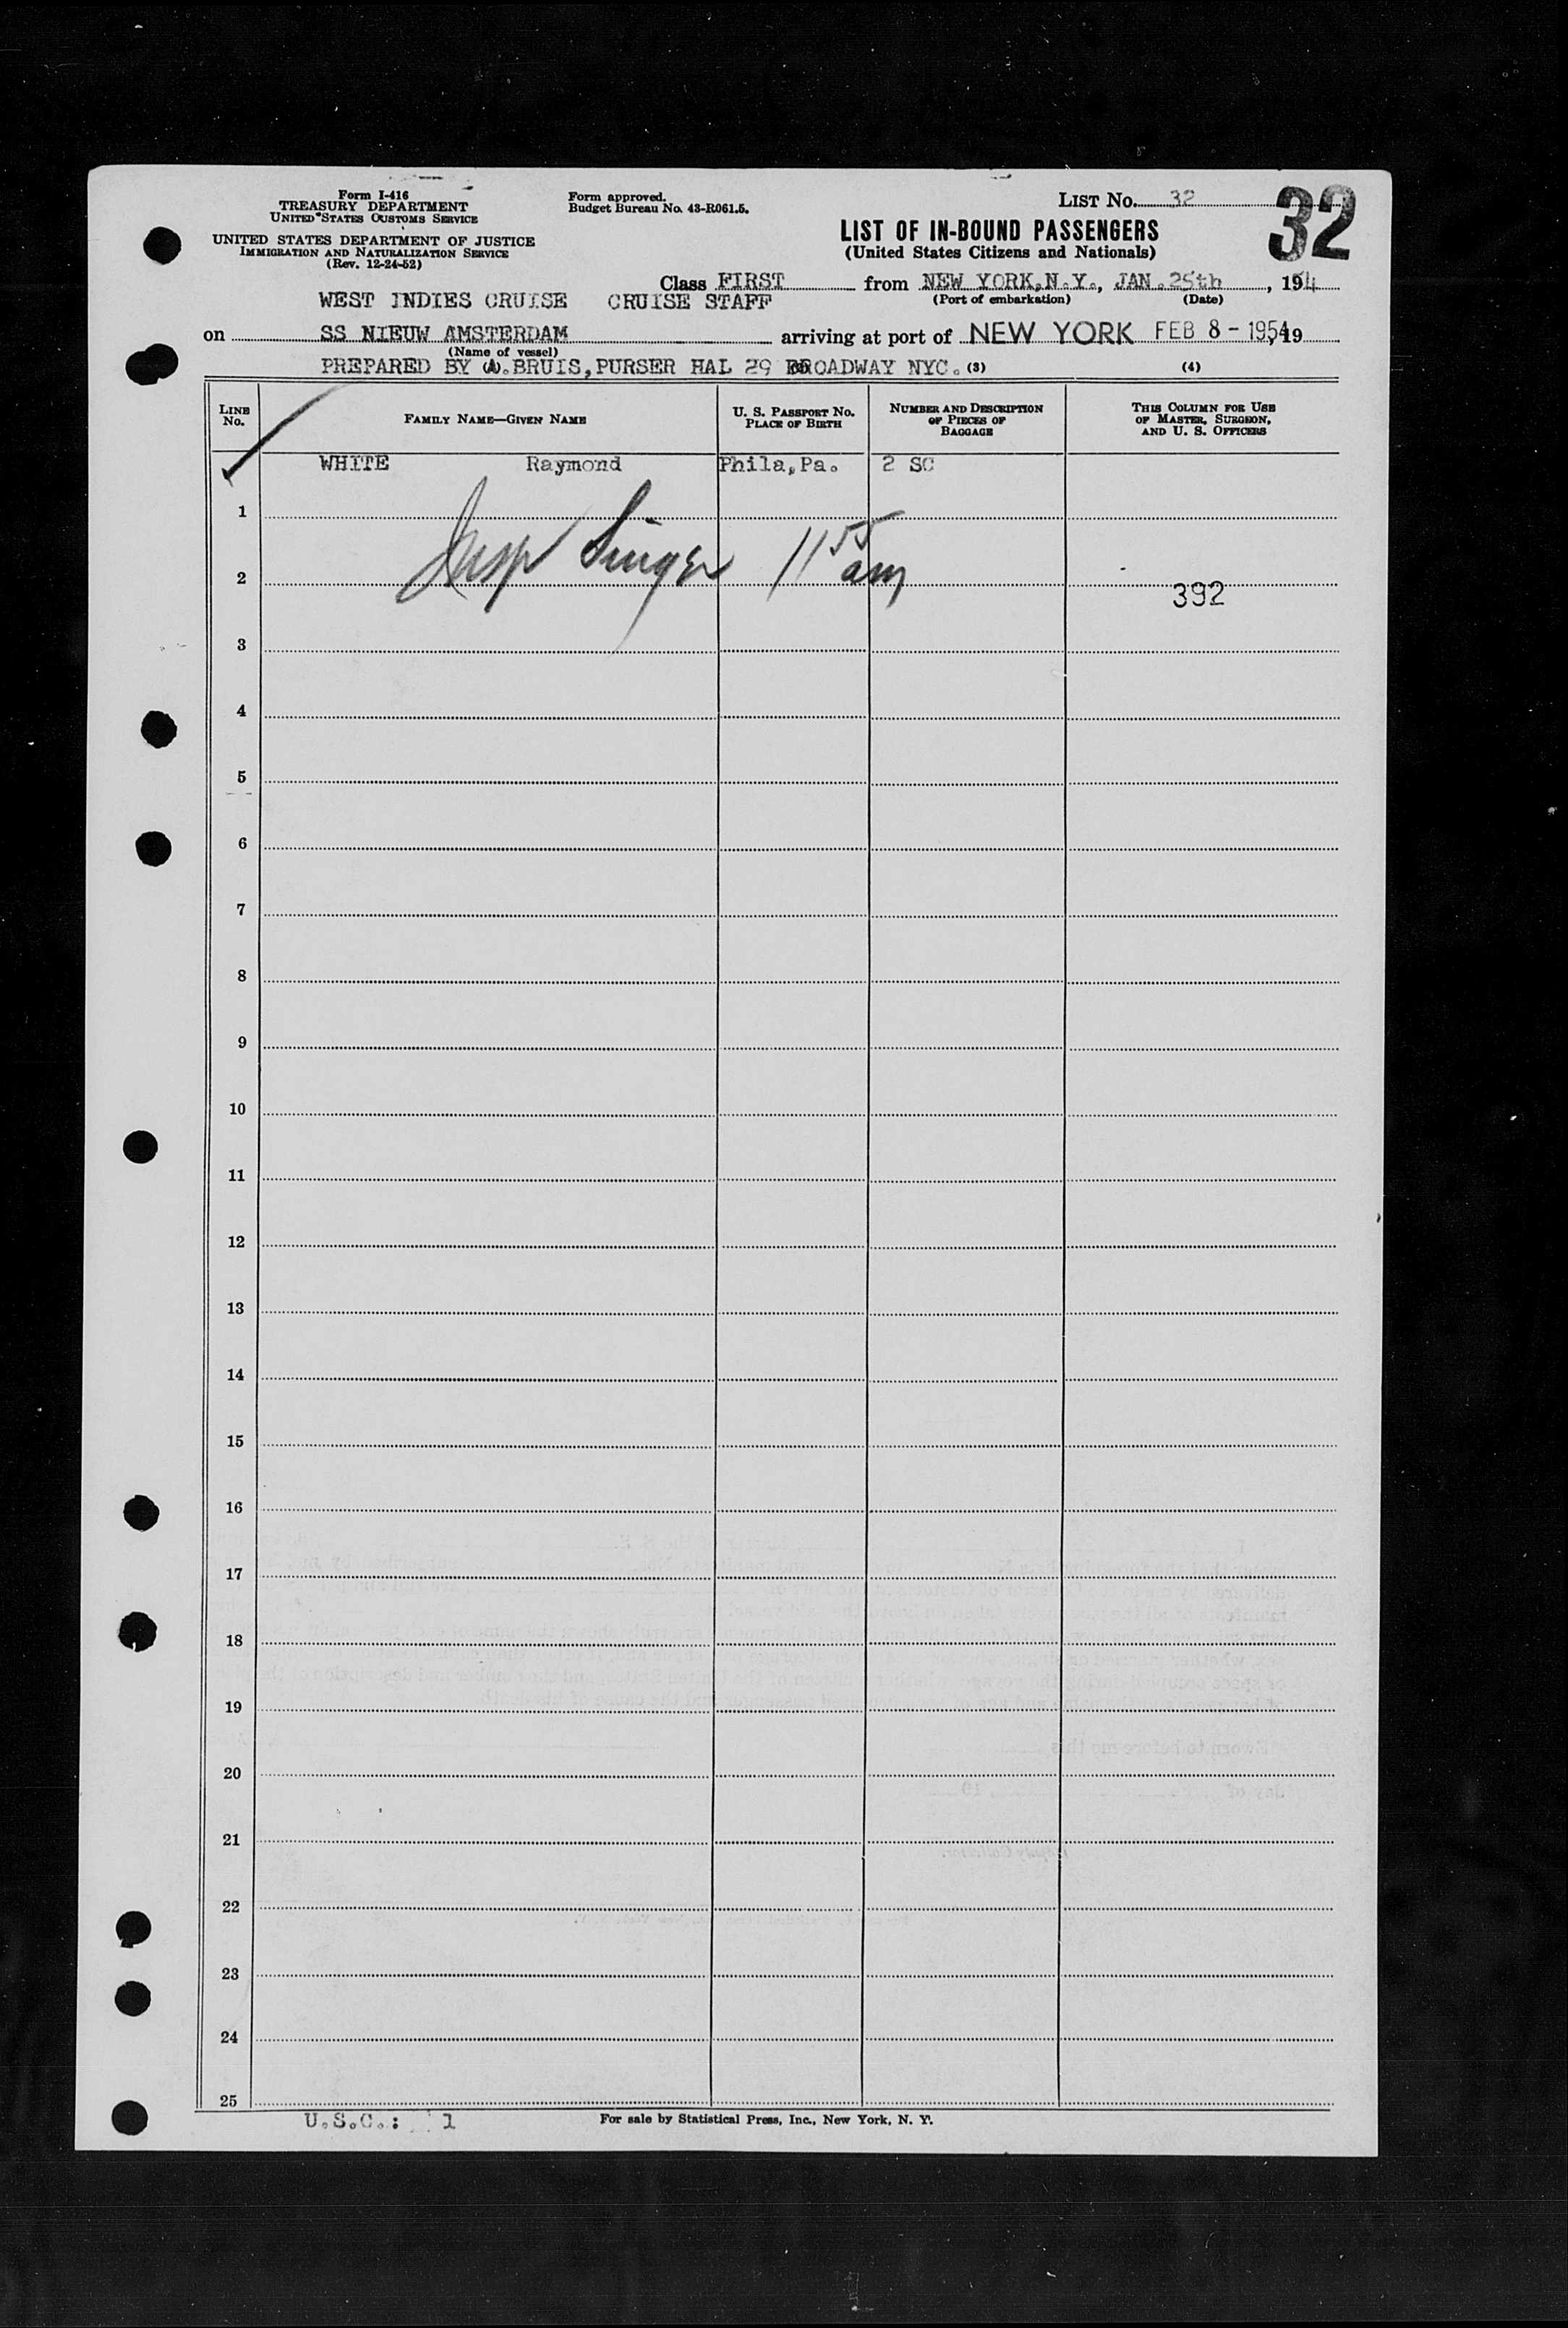 Form I-416
TREASURY DEPARTMENT
UNITED STATES CUSTOMS SERVICE
UNITED STATES DEPARTMENT OF JUSTICE
IMMIGRATION AND NATURALIZATION SERVICE
(Rev. 12-24-52)
Form approved.
Budget Bureau No. 43-R061.5.
LIST NO. 32
32
LIST OF IN-BOUND PASSENGERS
(United States Citizens and Nationals)
Class FIRST from NEW YORK, N.Y., JAN. 25th, 1954
(Port of embarkation) (Date)
WEST INDIES CRUISE CRUISE STAFF
on SS NIEUW AMSTERDAM arriving at port of NEW YORK FEB 8 - 1954 19
(Name of vessel)
PREPARED BY A. BRUIS, PURSER HAL 29 BROADWAY NYC. (3) (4)
LINE NO. FAMILY NAME—GIVEN NAME U. S. PASSPORT NO. PLACE OF BIRTH NUMBER AND DESCRIPTION OF PIECES OF BAGGAGE THIS COLUMN FOR USE OF MASTER, SURGEON, AND U. S. OFFICERS
WHITE Raymond Phila, Pa. 2 SC
1
Insp Singer 11 55 am
2
392
3
4
5
6
7
8
9
10
11
12
13
14
15
16
17
18
19
20
21
22
23
24
25
U.S.C.: 1
For sale by Statistical Press, Inc., New York, N. Y.